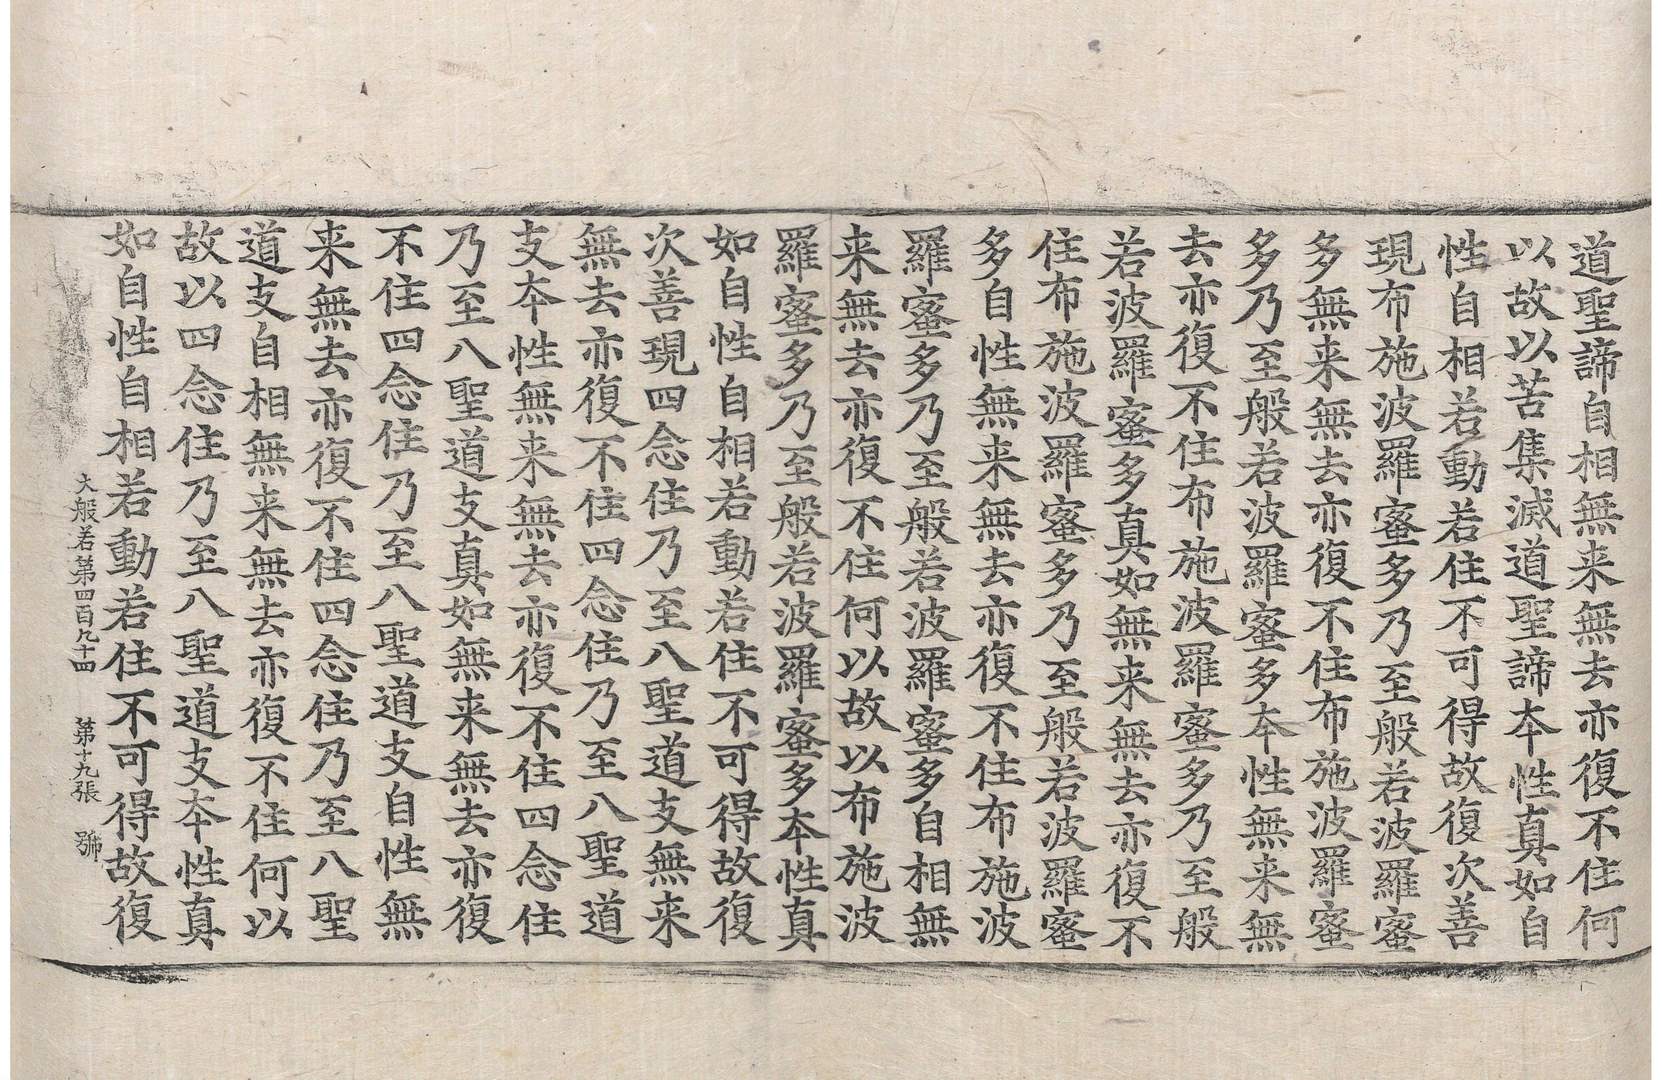 道聖諦自相無来無去亦復不住何
以故以苦集滅道聖諦夲性真如自
性自相若動若住不可得故復次善
現布施波羅蜜多乃至般若波羅蜜
多無来無去亦復不住布施波羅蜜
多乃至般若波羅蜜多夲性無来無
去亦復不住布施波羅蜜多乃至般
若波羅蜜多真如無来無去亦復不
住布施波羅蜜多乃至般若波羅蜜
多自性無来無去亦復不住布施波
羅蜜多乃至般若波羅蜜多自相無
来無去亦復不住何以故以布施波
羅蜜多乃至般若波羅蜜多夲性真
如自性自相若動若住不可得故復
次善現四念住乃至八聖道支無来
無去亦復不住四念住乃至八聖道
支夲性無来無去亦復不住四念住
乃至八聖道支真如無来無去亦復
不住四念住乃至八聖道支自性無
来無去亦復不住四念住乃至八聖
道支自相無来無去亦復不住何以
故以四念住乃至八聖道支夲性真
如自性自相若動若住不可得故復
大般若第四百九十四 第十九張 號